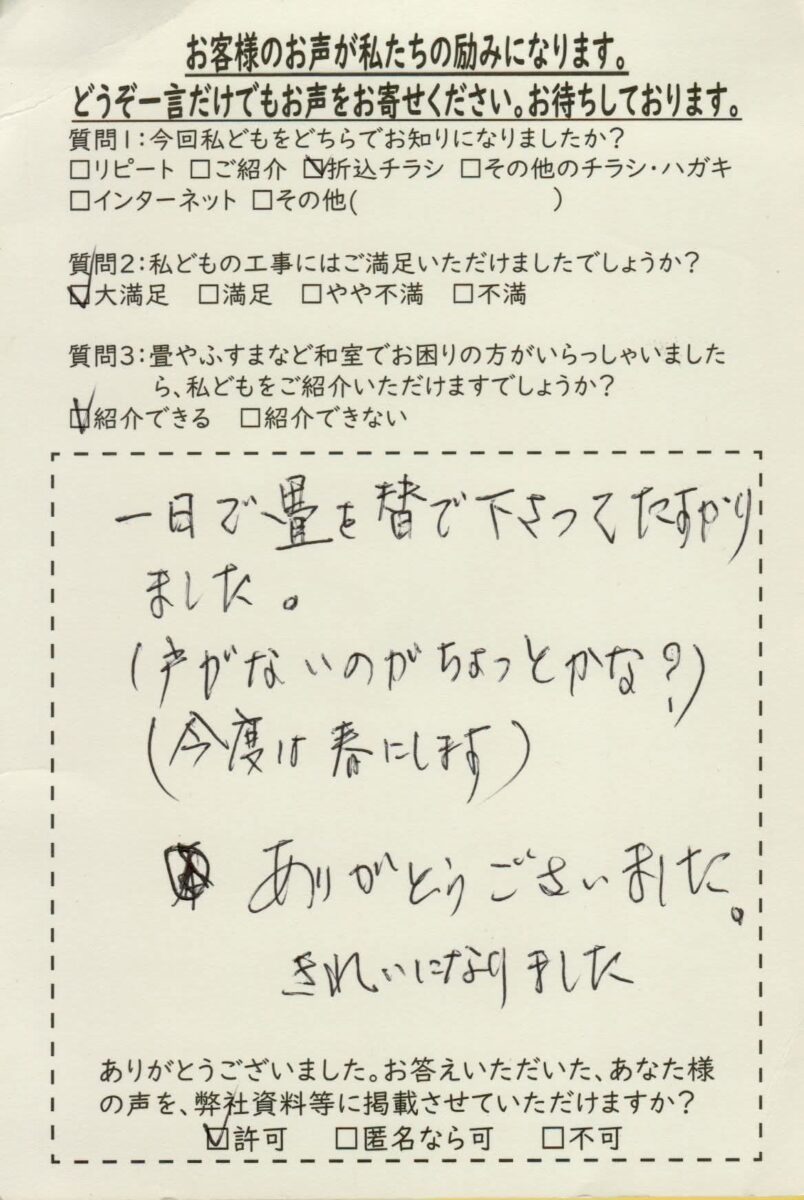 お客様のお声が私たちの励みになります。
どうぞ一言だけでもお声をお寄せください。お待ちしております。
質問1:今回私どもをどちらでお知りになりましたか?
□リピート □ご紹介 ☑折込チラシ □その他のチラシ・ハガキ
□インターネット □その他( )
質問2:私どもの工事にはご満足いただけましたでしょうか?
☑大満足 □満足 □やや不満 □不満
質問3:畳やふすまなど和室でお困りの方がいらっしゃいました
ら、私どもをご紹介いただけますでしょうか?
☑紹介できる □紹介できない
一日で畳を替て下さってたすかり
ました。
(戸がないのがちょっとかな?)
(今度は春にします)
ありがとうございました。
きれいになりました
ありがとうございました。お答えいただいた、あなた様
の声を、弊社資料等に掲載させていただけますか?
☑許可 □匿名なら可 □不可